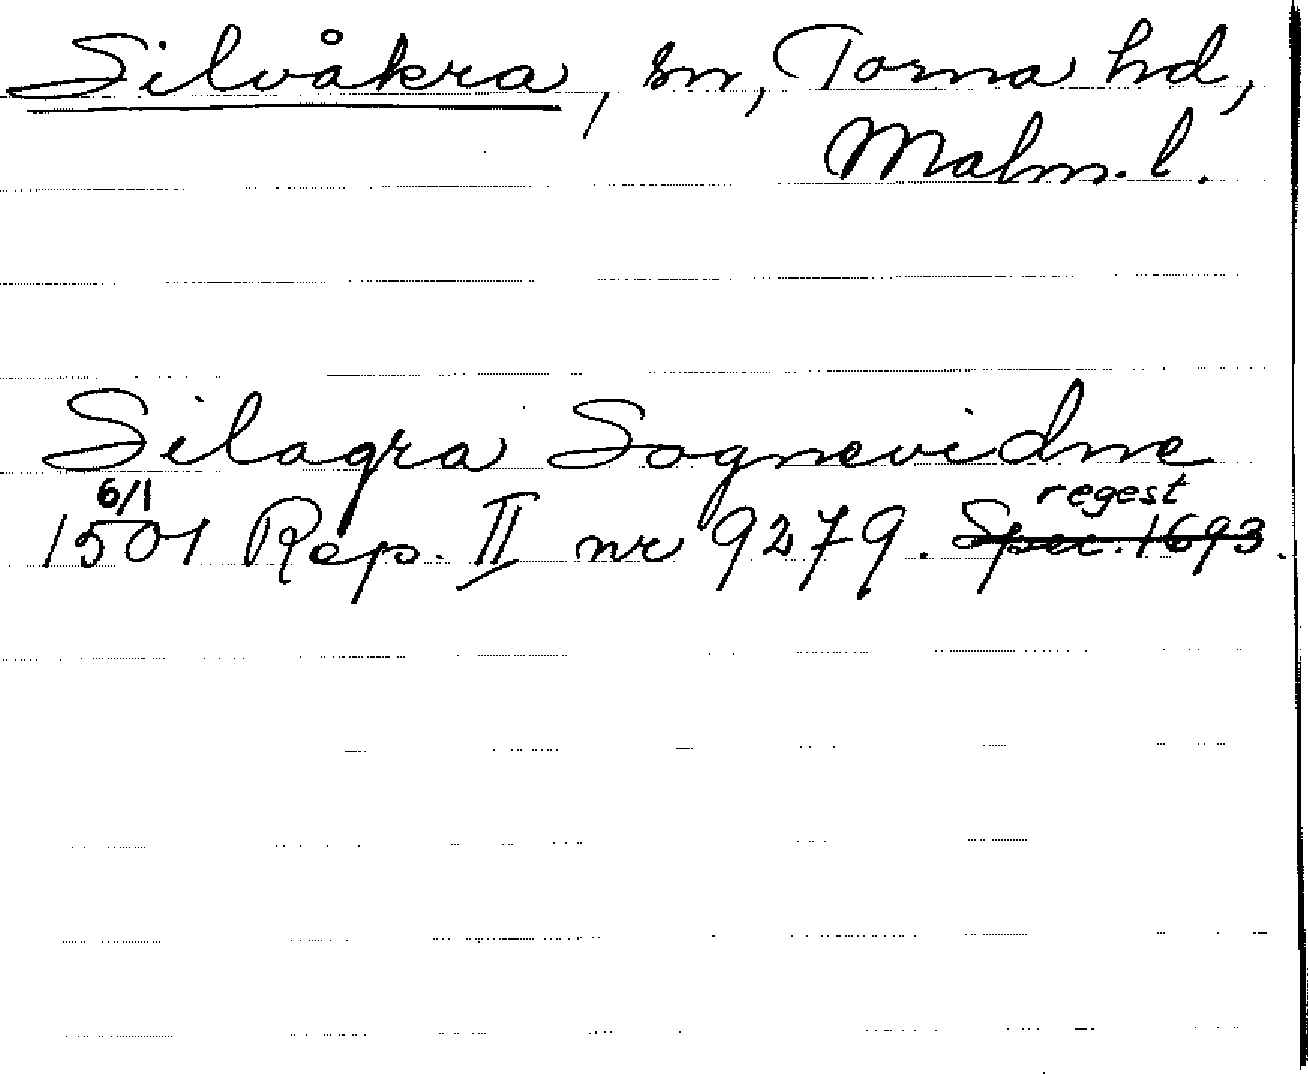 Silvåkra, sn, Torna hd,
Malm. l.
Silagra Sognevidne
6/1 regest
1501 Rep. II nr 9279. Spec. 1693.